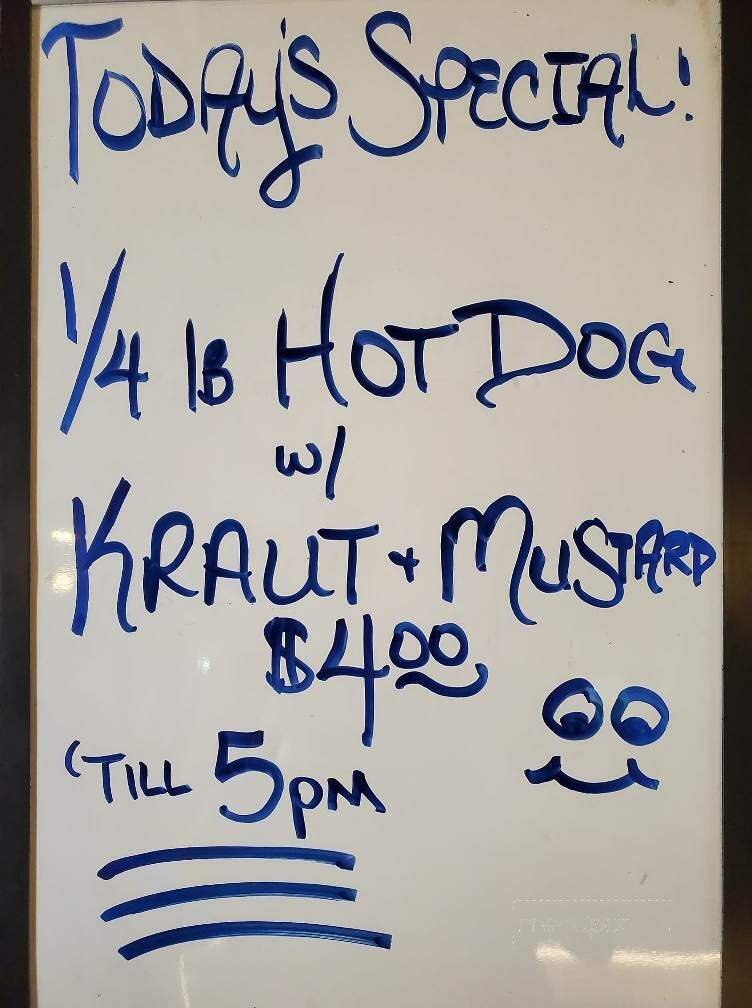 TODAY'S SPECIAL!
1/4 lB HOT DOG
w/
KRAUT + MUSTARD
$4.00
'TILL 5pm